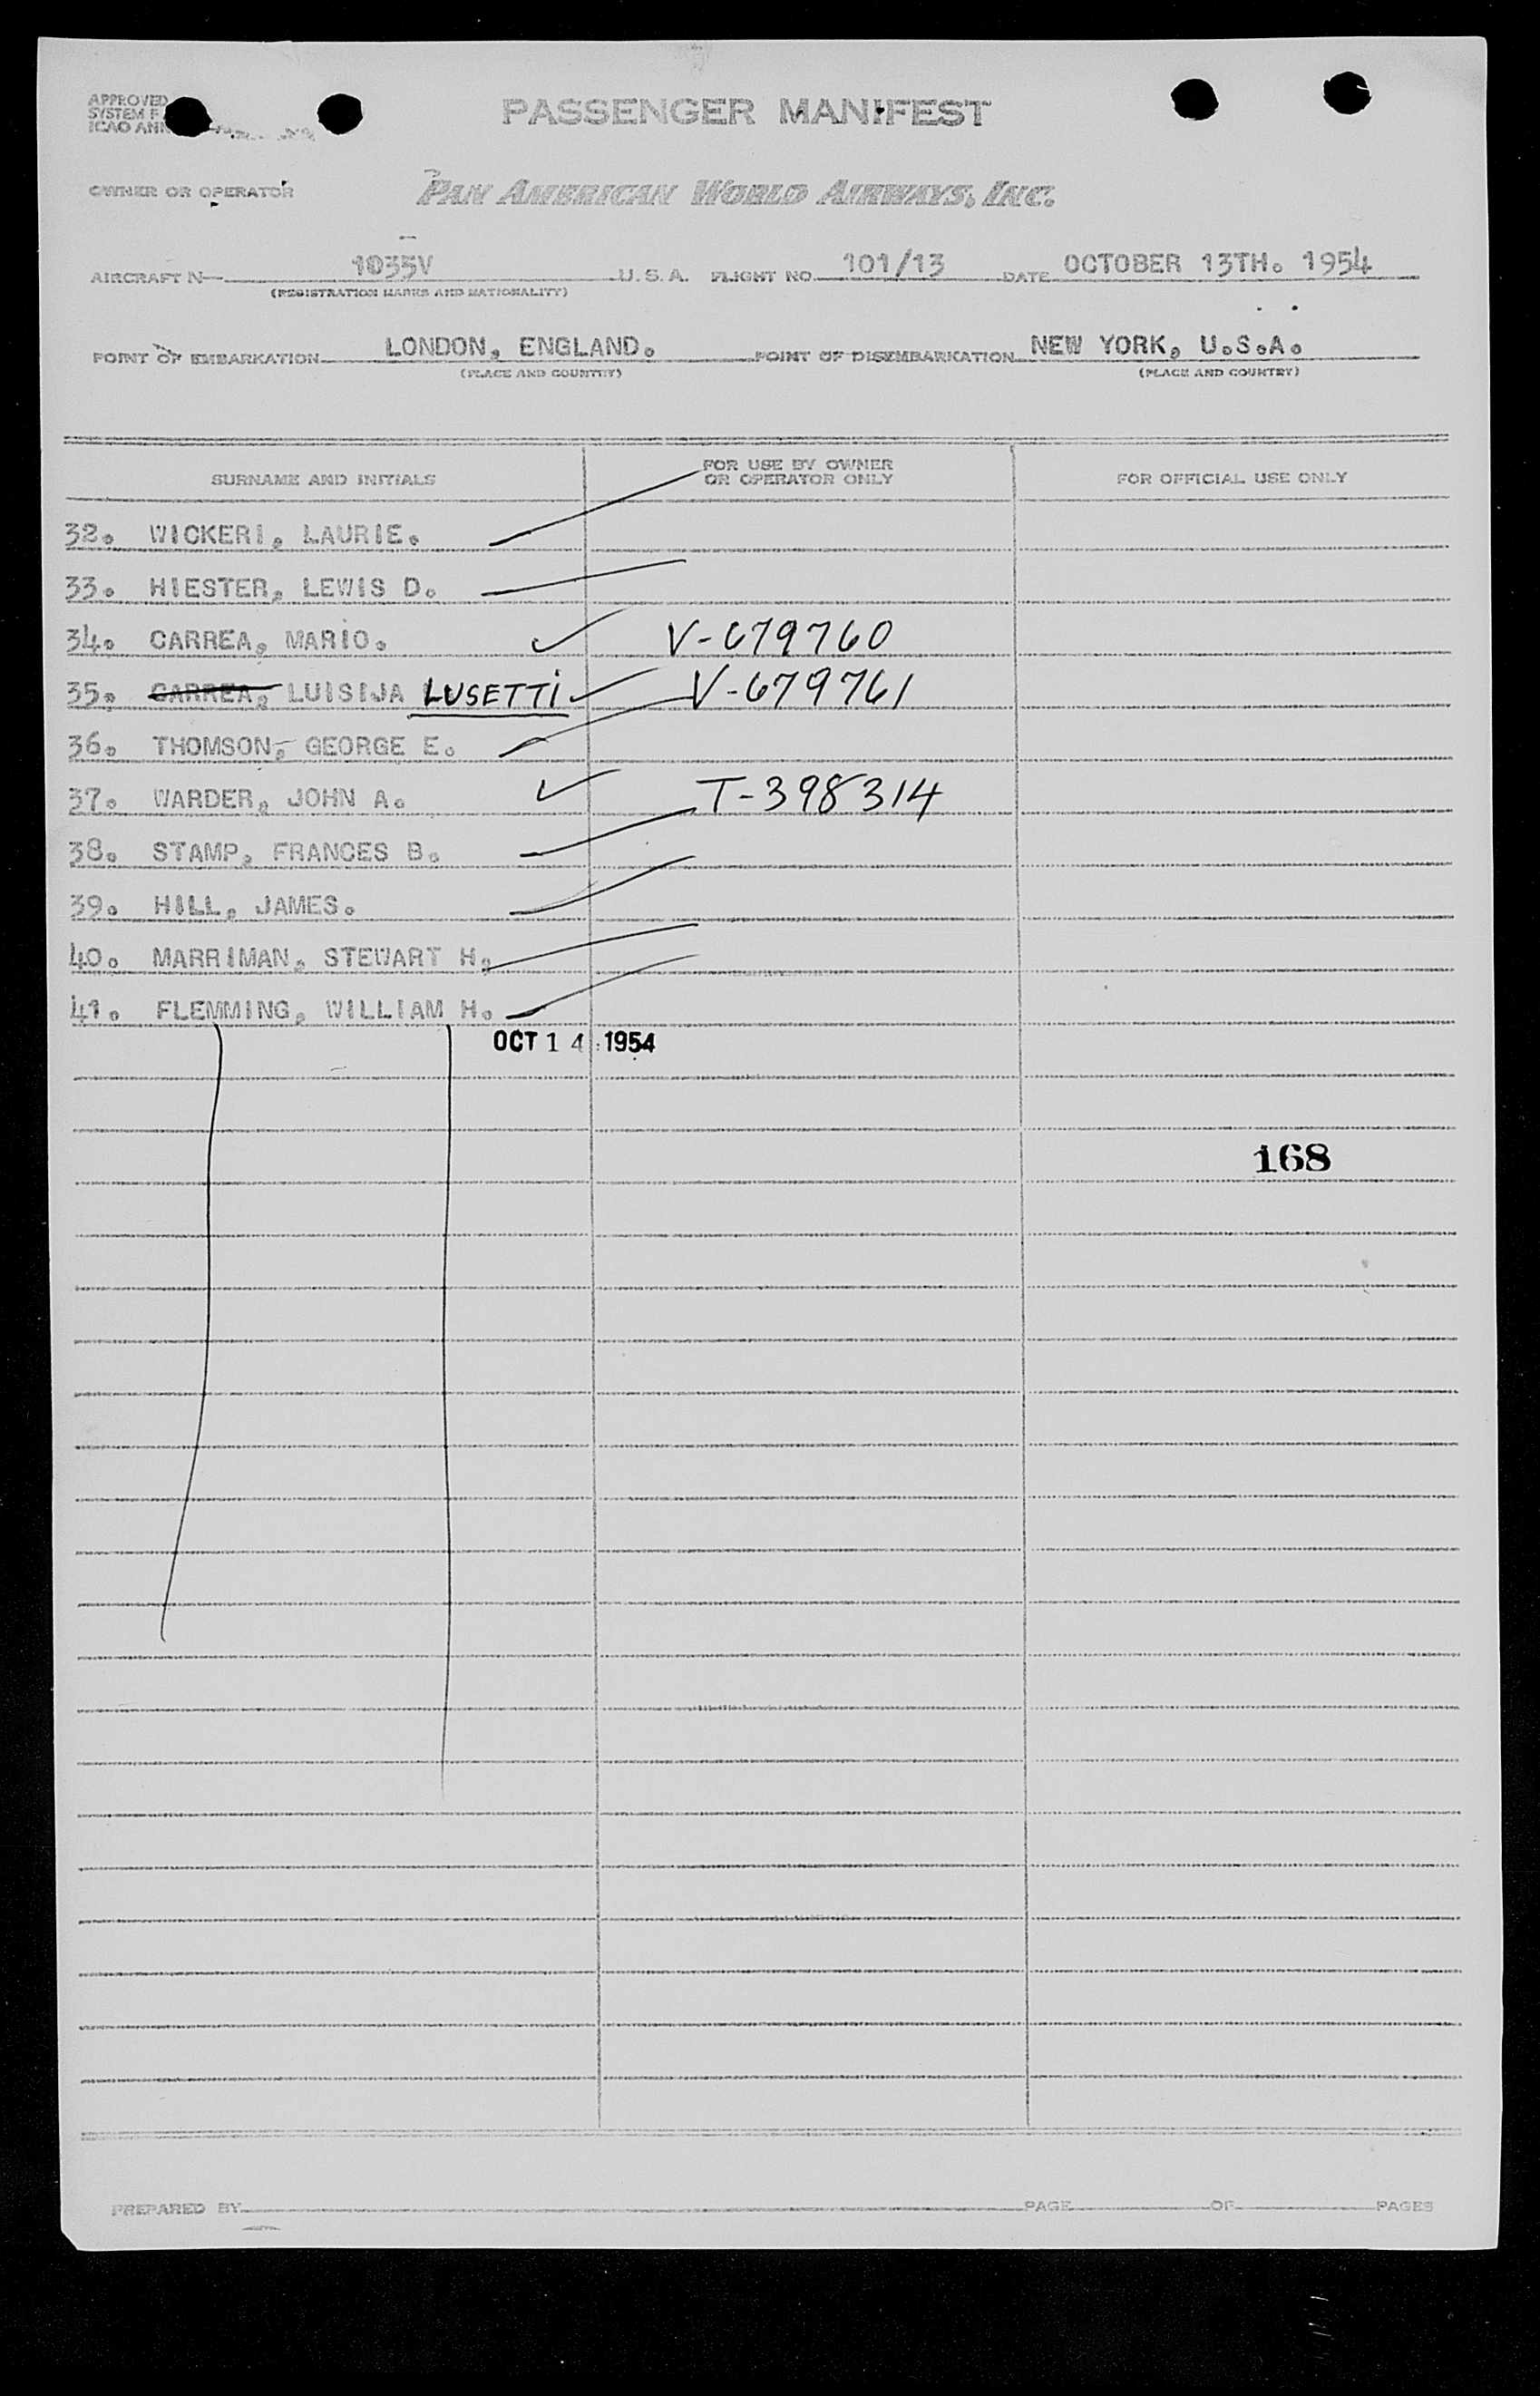 APPROVED
SYSTEM F
ICAO ANN
PASSENGER MANIFEST
OWNER OR OPERATOR PAN AMERICAN WORLD AIRWAYS, INC.
AIRCRAFT N- 1035V U.S.A. FLIGHT NO. 101/13 DATE OCTOBER 13TH. 1954
(REGISTRATION MARKS AND NATIONALITY)
POINT OF EMBARKATION LONDON, ENGLAND. POINT OF DISEMBARKATION NEW YORK, U.S.A.
(PLACE AND COUNTRY) (PLACE AND COUNTRY)
SURNAME AND INITIALS FOR USE BY OWNER OR OPERATOR ONLY FOR OFFICIAL USE ONLY
32. WICKERI, LAURIE.
33. HIESTER, LEWIS D.
34. CARREA, MARIO. V-679760
35. CARREA, LUISIJA LUSETTI V-679761
36. THOMSON, GEORGE E.
37. WARDER, JOHN A. T-398314
38. STAMP, FRANCES B.
39. HILL, JAMES.
40. MARRIMAN, STEWART H.
41. FLEMMING, WILLIAM H.
OCT 14 1954
168
PREPARED BY PAGE OF PAGES